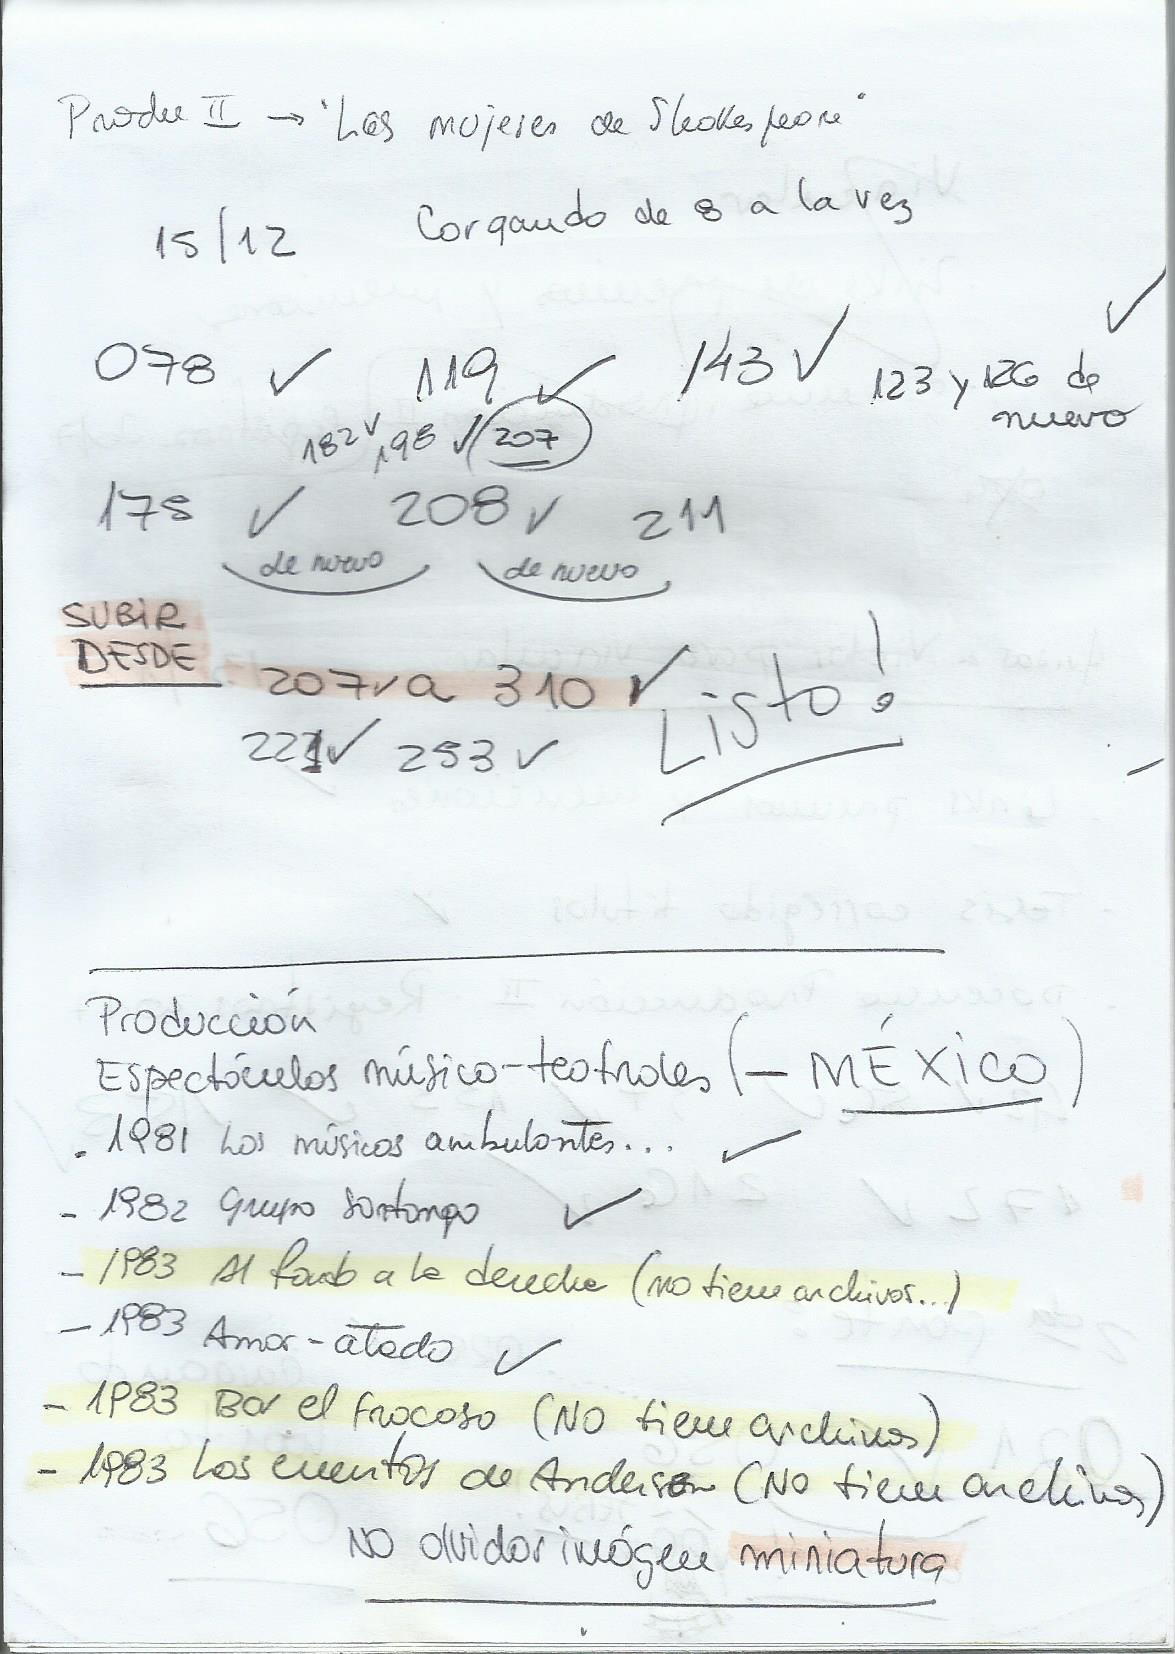 Produ II → "Las mujeres de Shakespeare"
15/12 Cargando de 8 a la vez
078 ✓ 119 ✓ 143 ✓ 123 y 126 de nuevo ✓
182 ✓ 198 ✓ (207)
175 ✓ 208 ✓ 211
de nuevo de nuevo
SUBIR
DESDE
207 ✓ a 310 ✓ Listo!
221 ✓ 253 ✓
Producción
Espectáculos músico-teatrales (- MÉXICO)
. 1981 Los músicos ambulantes... ✓
- 1982 Grupo Santango ✓
- 1983 Al fondo a la derecha (no tiene archivos...)
- 1983 Amor-atado ✓
- 1983 Bar el fracaso (NO tiene archivos)
- 1983 Los cuentos de Andersen (NO tiene archivos)
NO olvidar imágen miniatura